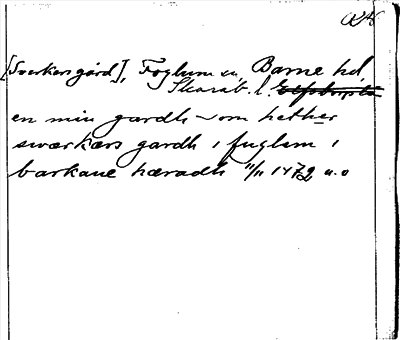 [Sverkersgård], Foglum sn, Barne hd,
Skarab. l.
en min gardh som hether
swærkærs gardh i fuglem i
barkane hæradh 11/11 1472 u.o